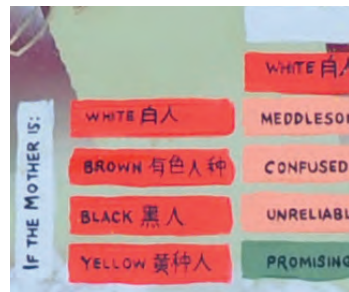 WHITE 白人
IF THE MOTHER IS:
WHITE 白人
BROWN 有色人种
BLACK 黑人
YELLOW 黄种人
MEDDLESO
CONFUSED
UNRELIABL
PROMISING